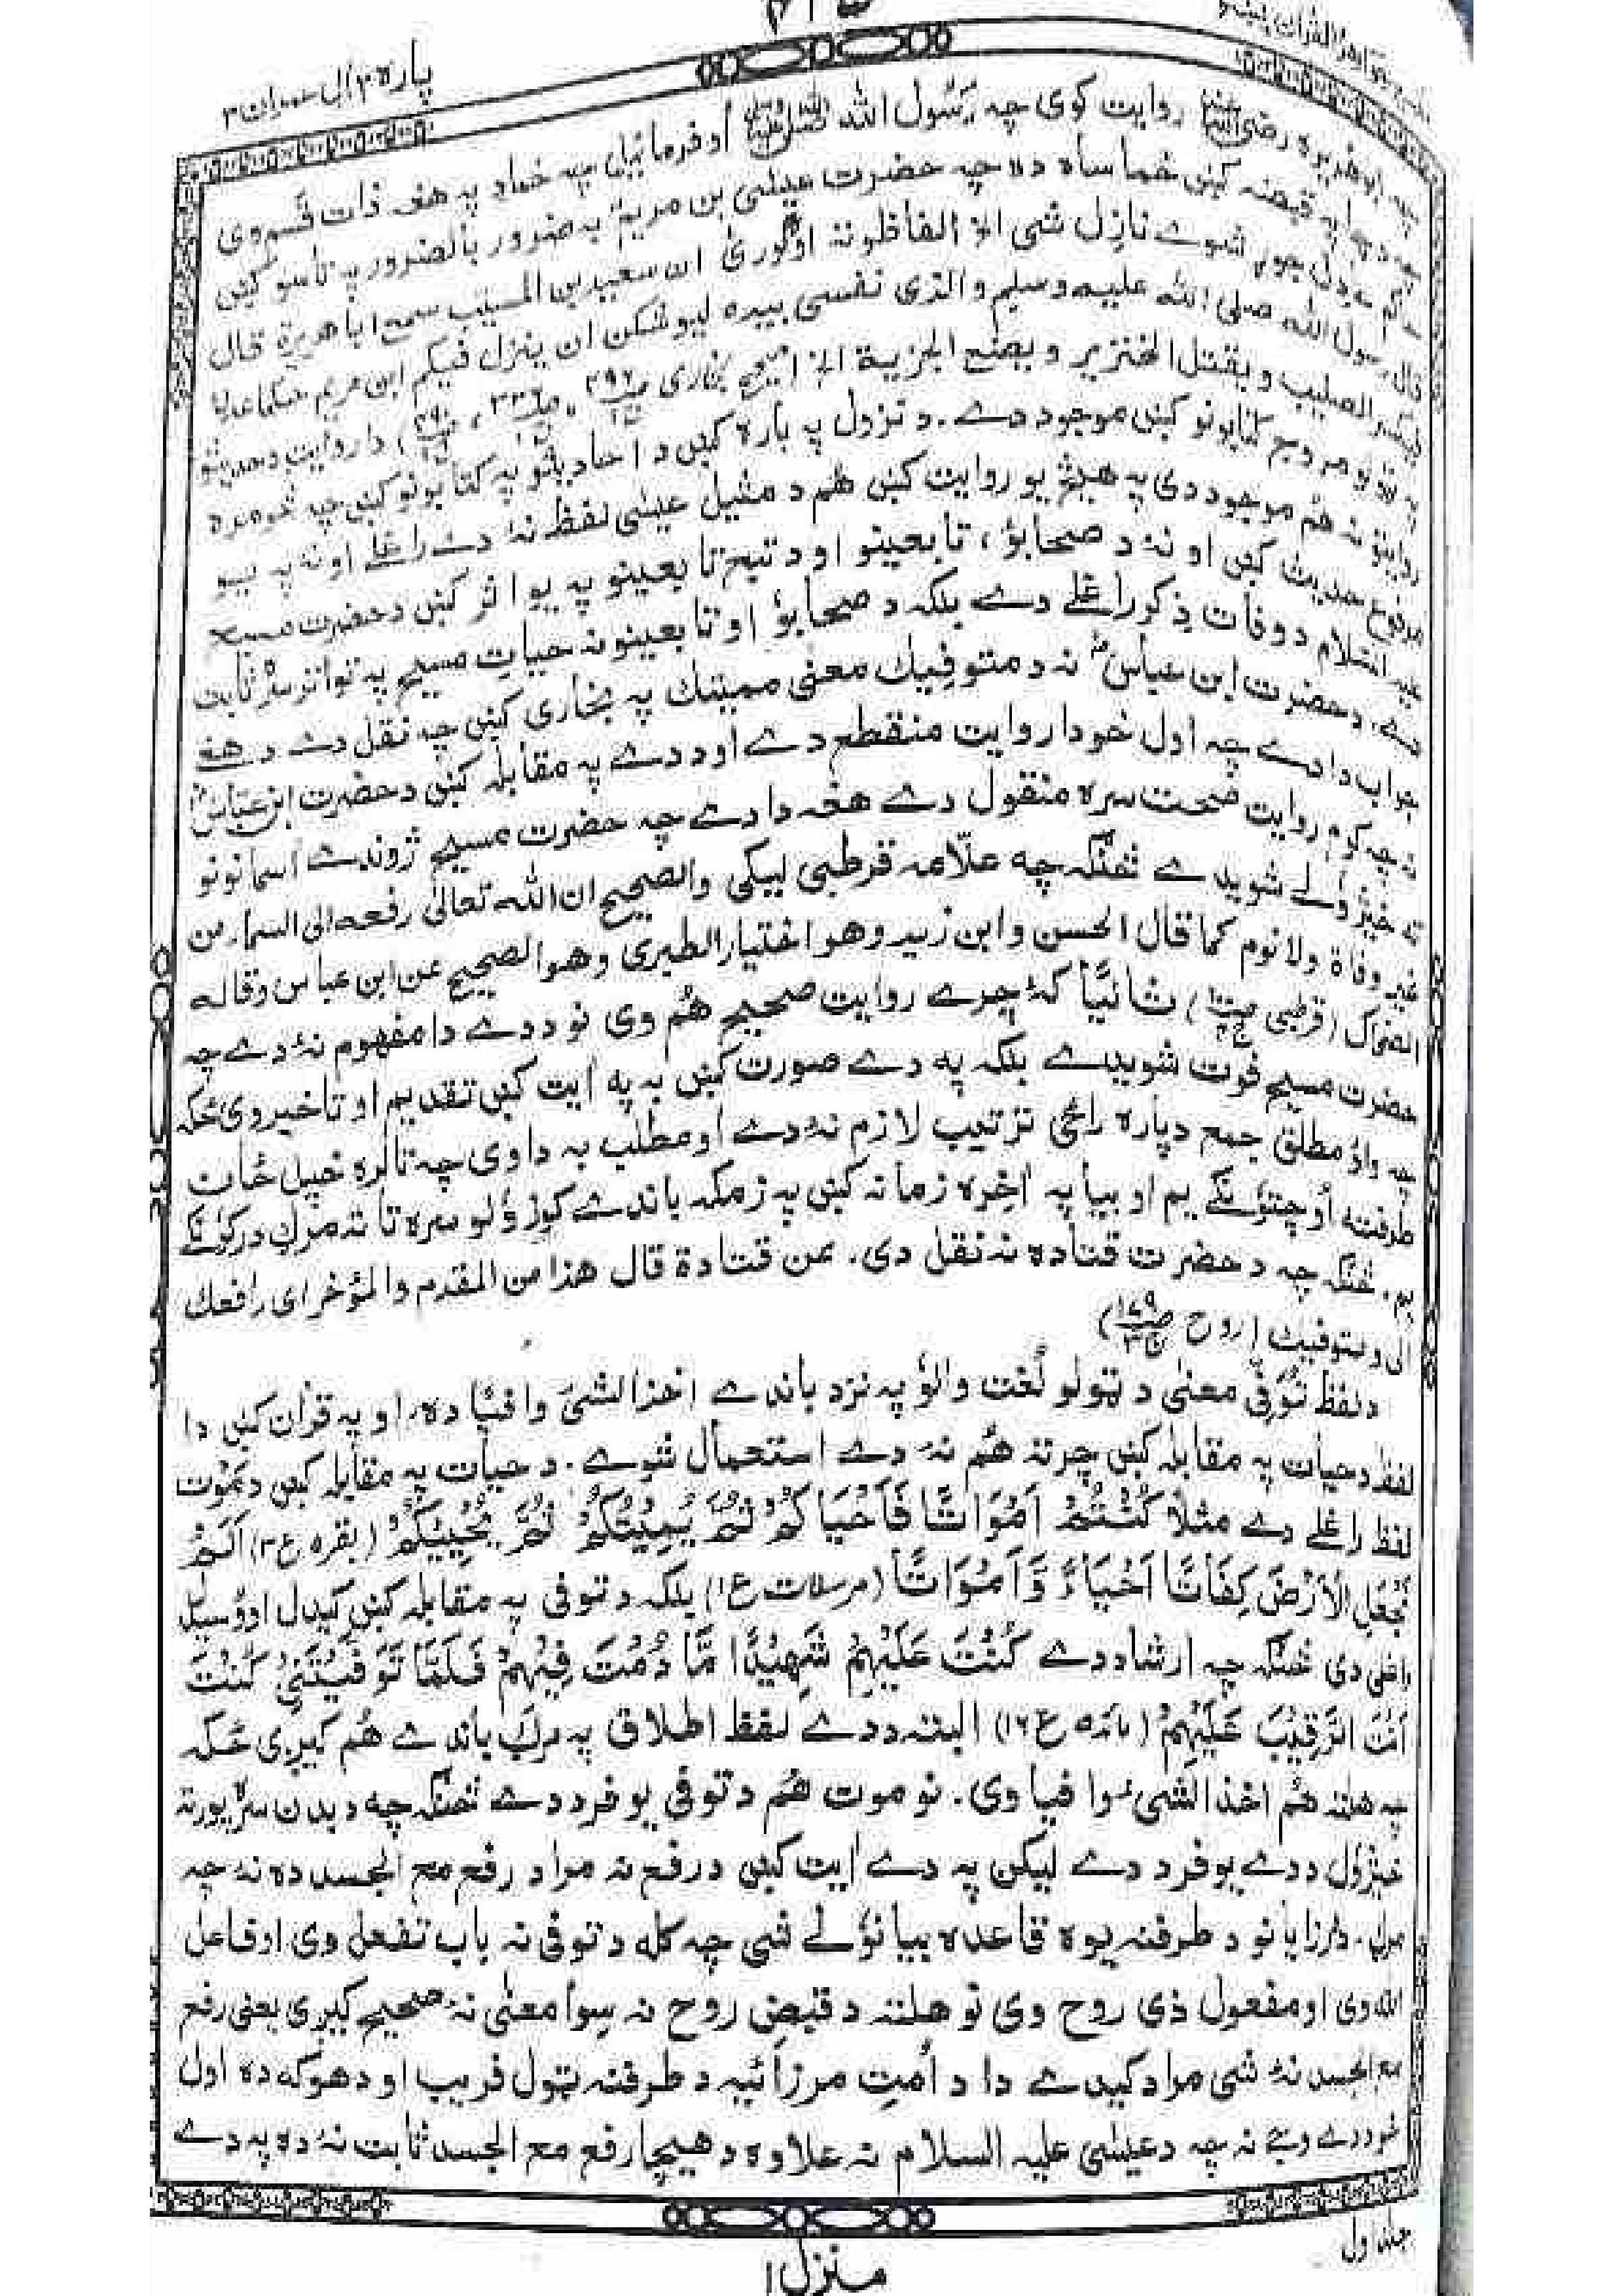 پاره ۳ اٰل عمران ۳
چہ ابو هریره رضی روایت کوی چہ رسُول الله ﷺ اوفرمائیل چہ خما د په هغہ ذات قسم وی
په قبضہ کښ خما ساه ده چہ حضرت عیسٰی بن مریمؑ بہ ضرور بالضرور په تاسو کښ
نازل شی الخ الفاظونہ اوګورئ ان سعید بن المسیّب سمع ابا هریرة قال
قال رسول الله صلی الله علیہ وسلم والذی نفسی بیده لیوشکن ان ینزل فیکم ابن مریم حکما عدلا
فیکسر الصلیب و یقتل الخنزیر و یضع الجزیة الخ (صحیح بخاری) دا روایت د حدیثو
په نورو مروج کتابونو کښ موجود دے۔ د نزول په باره کښ د احادیثو په کتابونو کښ چہ څومره
روایتونہ هم موجود دی په هیڅ یو روایت کښ هم د مثیل عیسٰی لفظ نۂ دے راغلے او نۂ په یو
مرفوع حدیث کښ او نۂ د صحابؤ، تابعینو او د تبع تابعینو په یو اثر کښ د حضرت مسیح
علیہ السلام د وفات ذکر راغلے دے بلکہ د صحابؤ او تابعینو نہ حیاتِ مسیح په تواتر سرهٔ ثابت
دے۔ د حضرت ابن عباسؓ نہ د متوفیک معنٰی ممیتک په بخاری کښ چہ نقل دے د هغے
جواب دا دے چہ اول خو دا روایت منقطع دے او د دے په مقابلہ کښ د حضرت ابن عباسؓ
نہ چہ کوم روایت صحت سره منقول دے هغہ دا دے چہ حضرت مسیح ژوندے اسمانونو
تہ خیژولے شویدے څنګہ چہ علّامہ قرطبی لیکی والصحیح ان الله تعالٰی رفعہ الی السماء من
غیر وفاة ولا نوم کما قال الحسن وابن زید وهو اختیار الطبری وهو الصحیح عن ابن عباس وقالہ
الضحاک (قرطبی) ثانیًا کۂ چرے روایت صحیح هُم وی نو د دے دا مفهوم نۂ دے چہ
حضرت مسیح فوت شویدے بلکہ په دے صورت کښ بہ په اٰیت کښ تقدیم او تاخیر وی ځکہ
چہ واؤ مطلق جمع دپاره راځی ترتیب لازم نۂ دے او مطلب بہ دا وی چہ تا لره خپل ځان
طرفتہ اوچتؤنکے یم او بیا په اٰخره زمانہ کښ په زمکہ باندے کوزؤلو سره تا تہ مرګ درکؤنکے
یم۔ څنګہ چہ د حضرت قتاده نہ نقل دی۔ عن قتادة قال هذا من المقدم والمؤخر ای رافعک
الی و متوفیک (روح ص ۱۷۹ ج ۳)
د لفظ تَوَفّی معنٰی د ټولو لُغت والؤ په نزد باندے اخذ الشیٔ وافیًا ده، او په قرآن کښ دا
لفظ د حیات په مقابلہ کښ چرتہ هُم نۂ دے استعمال شوے۔ د حیات په مقابلہ کښ د موت
لفظ راغلے دے مثلاً کُنْتُمْ اَمْوَاتًا فَاَحْیَاکُمْ ثُمَّ یُمِیْتُکُمْ ثُمَّ یُحْیِیْکُمْ (بقره ع ۳) اَلَمْ
نَجْعَلِ الْاَرْضَ کِفَاتًا اَحْیَاءً وَّاَمْوَاتًا (مرسلات ع ۱) بلکہ د توفی په مقابلہ کښ کیدل او اوسیدل
راغلی دی څنګہ چہ ارشاد دے کُنْتُ عَلَیْهِمْ شَهِیْدًا مَّا دُمْتُ فِیْهِمْ فَلَمَّا تَوَفَّیْتَنِیْ کُنْتَ
اَنْتَ الرَّقِیْبَ عَلَیْهِمْ (مائده ع ۱۶) البتہ د دے لفظ اطلاق په مرګ باندے هُم کیږی ځکہ
په هلتہ هُم اخذ الشیٔ وافیا وی۔ نو موت هُم د توفی یو فرد دے څنګہ چہ د بدن سرهٔ پورتہ
خیژول د دے یو فرد دے لیکن په دے اٰیت کښ د رفع نہ مراد رفع مع الجسد ده نہ چہ
مرګ۔ د مرزایانو د طرفتہ یوه قاعده بیانؤلے شی چہ کلہ د توفی نہ باب تفعل وی او فاعل
الله وی او مفعول ذی روح وی نو هلتہ د قبض روح نہ سوا معنٰی نۂ صحیح کیږی یعنی رفع
مع الجسد نۂ شی مراد کیدے دا د اُمتِ مرزائیہ د طرفتہ ټول فریب او دهوکہ ده اول
خو د دے وجے نہ چہ د عیسٰی علیہ السلام نہ علاوه د هیچا رفع مع الجسد ثابت نۂ ده په دے
جلد اول
منزل ۱